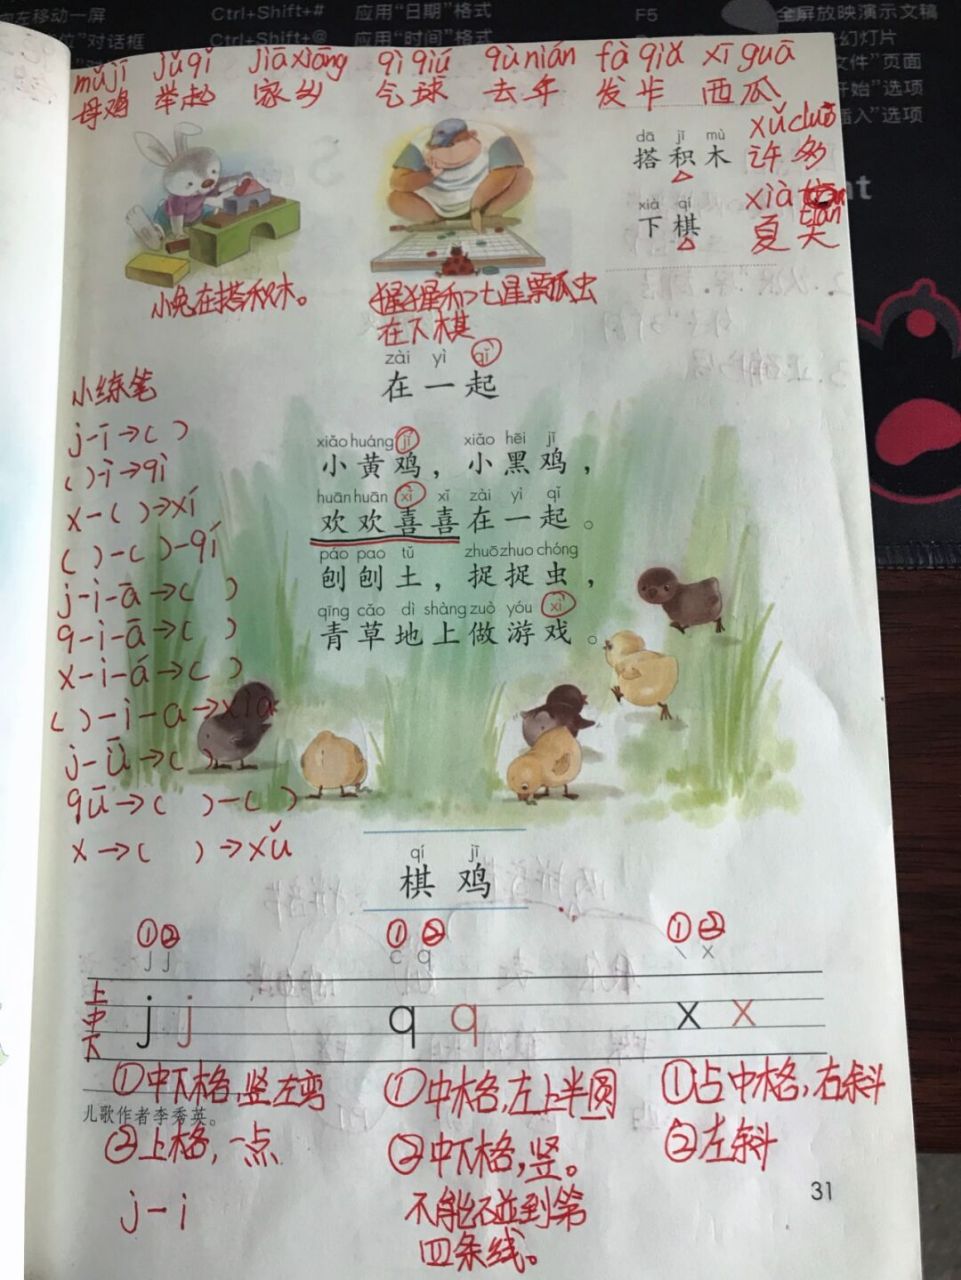 左移动一屏 Ctrl+Shift+# 应用“日期”格式 F5 全屏放映演示文稿
位”对话框 Ctrl+Shift+@ 应用“时间”格式 幻灯片
文件”页面
开始”选项
插入”选项
mǔ jī jǔ qǐ jiā xiāng qì qiú qù nián fà qiǎ xī guā
母鸡 举起 家乡 气球 去年 发卡 西瓜
dā jī mù
搭积木
xǔ duō
许多
xià qí
下棋
xià tiān
夏天
小兔在搭积木。
猩猩和七星瓢虫
在下棋
zài yì qǐ
在一起
小练笔
j-ī→( )
( )-ì→qì
x-( )→xí
( )-( )-qí
j-i-ā→( )
q-i-ā→( )
x-i-á→( )
( )-i-a→xia
j-ū→( )
qū→( )-( )
x→( )→xǔ
xiǎo huáng jī xiǎo hēi jī
小黄鸡，小黑鸡，
huān huān xǐ xǐ zài yì qǐ
欢欢喜喜在一起。
páo pao tǔ zhuō zhuo chóng
刨刨土，捉捉虫，
qīng cǎo dì shàng zuò yóu xì
青草地上做游戏。
qí jī
棋 鸡
①② ①② ①②
j j c q \ x
上
中
下
j j q q x x
①中下格，竖左弯
②上格，一点
j-i
儿歌作者李秀英。
①中格，左上半圆
②中下格，竖。
不能碰到第
四条线。
①占中格，右斜
②左斜
31